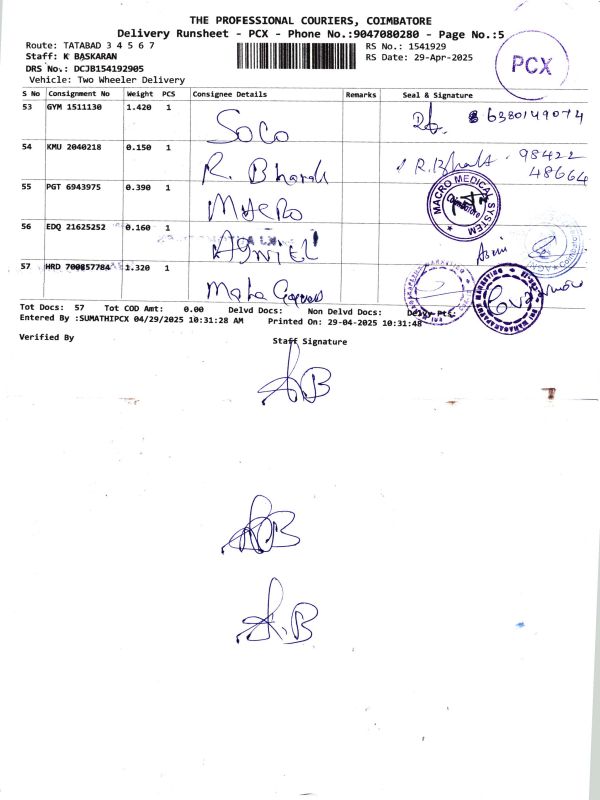 THE PROFESSIONAL COURIERS, COIMBATORE
Delivery Runsheet - PCX - Phone No.:9047080280 - Page No.:5
Route: TATABAD 3 4 5 6 7
RS No.: 1541929
Staff: K BASKARAN
RS Date: 29-Apr-2025
DRS No.: DCJB154192905
Vehicle: Two Wheeler Delivery
PCX
S No Consignment No Weight PCS Consignee Details Remarks Seal & Signature
53 GYM 1511130 1.420 1 SoCo 6380149074
54 KMU 2040218 0.150 1 R. Bharath R. Bharath 98422
48664
55 PGT 6943975 0.390 1 MACRO MACRO MEDICAL SYSTEM Coimbatore
56 EDQ 21625252 0.160 1 AGNIEL
57 HRD 700857784 1.320 1 Maha
Tot Docs: 57 Tot COD Amt: 0.00 Delvd Docs: Non Delvd Docs: Delvy Pts:
Entered By :SUMATHIPCX 04/29/2025 10:31:28 AM Printed On: 29-04-2025 10:31:48
Verified By
Staff Signature